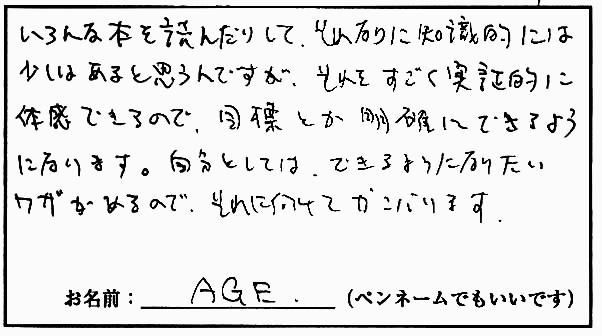 いろんな本を読んだりして、それなりに知識的には
少しはあると思うんですが、それをすごく実証的に
体感できるので、目標とか明確にできるよう
になります。自分としては、できるようになりたい
ワザがあるので、それに向けてガンバリます。
お名前：AGE. （ペンネームでもいいです）